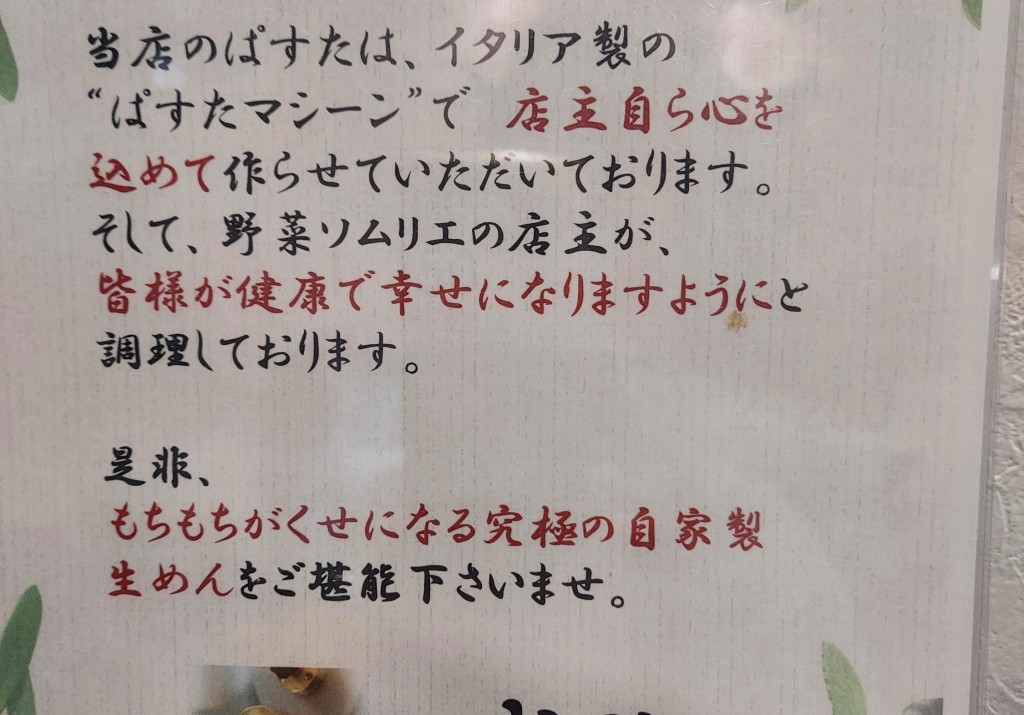 当店のぱすたは、イタリア製の
“ぱすたマシーン”で 店主自ら心を
込めて作らせていただいております。
そして、野菜ソムリエの店主が、
皆様が健康で幸せになりますようにと
調理しております。
是非、
もちもちがくせになる究極の自家製
生めんをご堪能下さいませ。